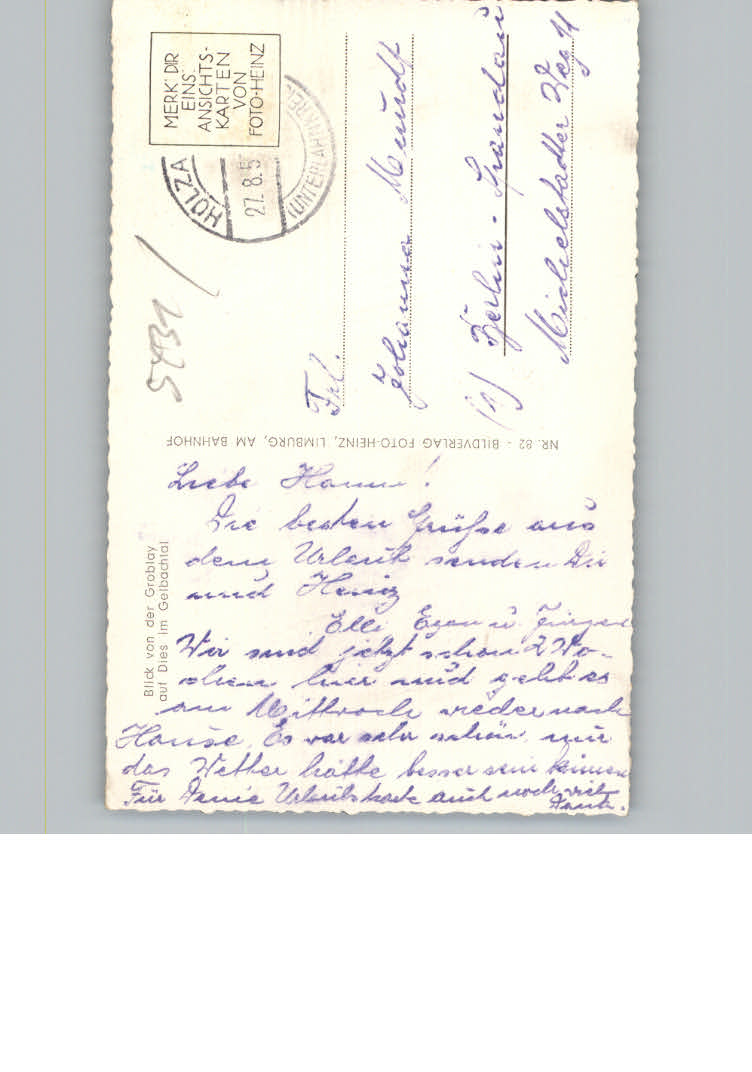 Blick von der Groblay
auf Dies im Gelbachtal
Liebe Hanni!
Die besten Grüße aus
dem Urlaub senden Dir
und Heinz
Elli Egon u. Jürgen
Wir sind jetzt schon 2 Wo-
chen hier und geht es
am Mittwoch wieder nach
Hause. Es war sehr schön, nur
das Wetter hätte besser sein können
Für Deine Urlaubskarte auch noch viel
Dank.
NR. 82 - BILDVERLAG FOTO-HEINZ, LIMBURG, AM BAHNHOF
MERK' DIR
EINS:
ANSICHTS-
KARTEN
VON
FOTO-HEINZ
HOLZA
27.8.5
(UNTERLAHNKREIS
5431
Frl.
Johanna Mundt
(1) Berlin - Spandau
Michelstadter Weg 11